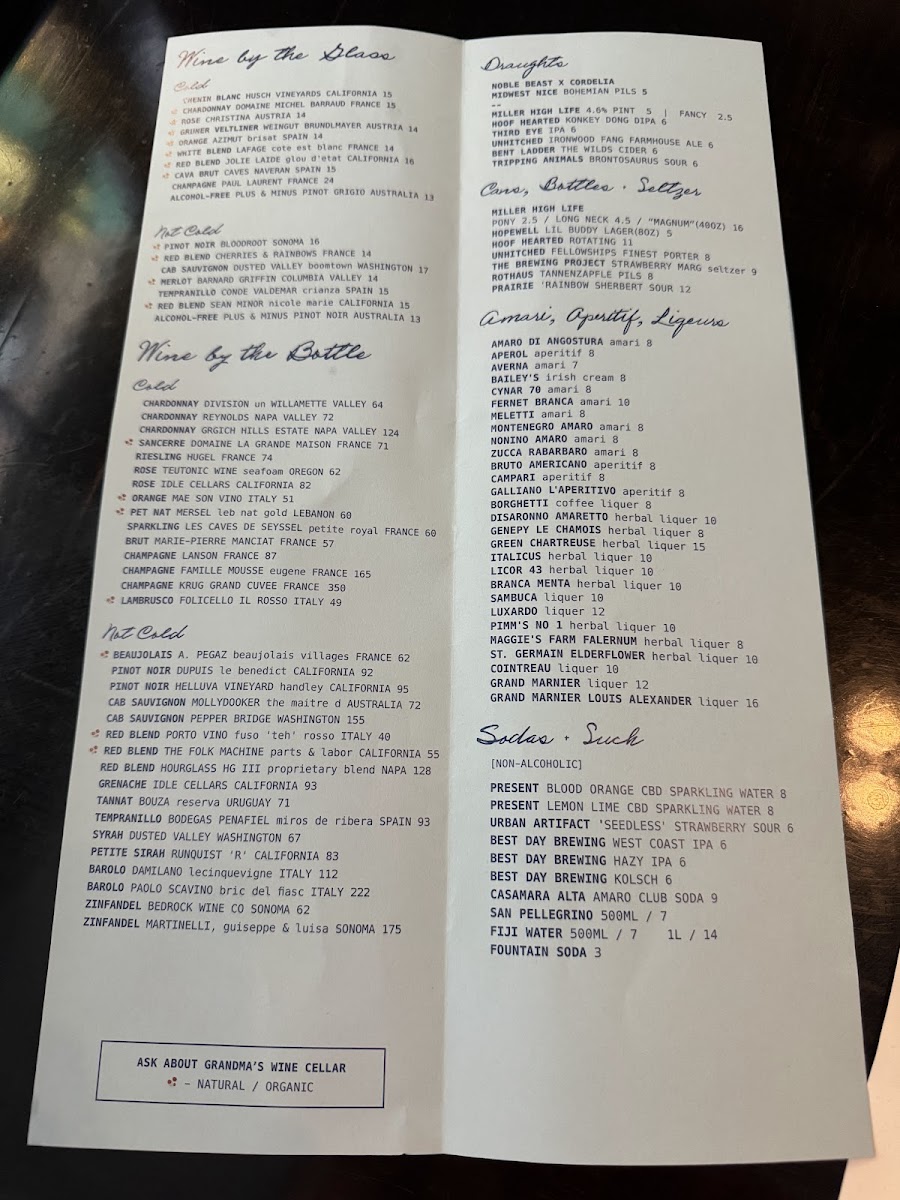 Wine by the Glass
Cold
CHENIN BLANC HUSCH VINEYARDS CALIFORNIA 15
CHARDONNAY DOMAINE MICHEL BARRAUD FRANCE 15
ROSE CHRISTINA AUSTRIA 14
GRUNER VELTLINER WEINGUT BRUNDLMAYER AUSTRIA 14
ORANGE AZIMUT brisat SPAIN 14
WHITE BLEND LAFAGE cote est blanc FRANCE 14
RED BLEND JOLIE LAIDE glou d'etat CALIFORNIA 16
CAVA BRUT CAVES NAVERAN SPAIN 15
CHAMPAGNE PAUL LAURENT FRANCE 24
ALCOHOL-FREE PLUS & MINUS PINOT GRIGIO AUSTRALIA 13
Not Cold
PINOT NOIR BLOODROOT SONOMA 16
RED BLEND CHERRIES & RAINBOWS FRANCE 14
CAB SAUVIGNON DUSTED VALLEY boomtown WASHINGTON 17
MERLOT BARNARD GRIFFIN COLUMBIA VALLEY 14
TEMPRANILLO CONDE VALDEMAR crianza SPAIN 15
RED BLEND SEAN MINOR nicole marie CALIFORNIA 15
ALCOHOL-FREE PLUS & MINUS PINOT NOIR AUSTRALIA 13
Wine by the Bottle
Cold
CHARDONNAY DIVISION un WILLAMETTE VALLEY 64
CHARDONNAY REYNOLDS NAPA VALLEY 72
CHARDONNAY GRGICH HILLS ESTATE NAPA VALLEY 124
SANCERRE DOMAINE LA GRANDE MAISON FRANCE 71
RIESLING HUGEL FRANCE 74
ROSE TEUTONIC WINE seafoam OREGON 62
ROSE IDLE CELLARS CALIFORNIA 82
ORANGE MAE SON VINO ITALY 51
PET NAT MERSEL leb nat gold LEBANON 60
SPARKLING LES CAVES DE SEYSSEL petite royal FRANCE 60
BRUT MARIE-PIERRE MANCIAT FRANCE 57
CHAMPAGNE LANSON FRANCE 87
CHAMPAGNE FAMILLE MOUSSE eugene FRANCE 165
CHAMPAGNE KRUG GRAND CUVEE FRANCE 350
LAMBRUSCO FOLICELLO IL ROSSO ITALY 49
Not Cold
BEAUJOLAIS A. PEGAZ beaujolais villages FRANCE 62
PINOT NOIR DUPUIS le benedict CALIFORNIA 92
PINOT NOIR HELLUVA VINEYARD handley CALIFORNIA 95
CAB SAUVIGNON MOLLYDOOKER the maitre d AUSTRALIA 72
CAB SAUVIGNON PEPPER BRIDGE WASHINGTON 155
RED BLEND PORTO VINO fuso 'teh' rosso ITALY 40
RED BLEND THE FOLK MACHINE parts & labor CALIFORNIA 55
RED BLEND HOURGLASS HG III proprietary blend NAPA 128
GRENACHE IDLE CELLARS CALIFORNIA 93
TANNAT BOUZA reserva URUGUAY 71
TEMPRANILLO BODEGAS PENAFIEL miros de ribera SPAIN 93
SYRAH DUSTED VALLEY WASHINGTON 67
PETITE SIRAH RUNQUIST 'R' CALIFORNIA 83
BAROLO DAMILANO lecinquevigne ITALY 112
BAROLO PAOLO SCAVINO bric del fiasc ITALY 222
ZINFANDEL BEDROCK WINE CO SONOMA 62
ZINFANDEL MARTINELLI, guiseppe & luisa SONOMA 175
ASK ABOUT GRANDMA'S WINE CELLAR
- NATURAL / ORGANIC
Draughts
NOBLE BEAST X CORDELIA
MIDWEST NICE BOHEMIAN PILS 5
--
MILLER HIGH LIFE 4.6% PINT 5 | FANCY 2.5
HOOF HEARTED KONKEY DONG DIPA 6
THIRD EYE IPA 6
UNHITCHED IRONWOOD FANG FARMHOUSE ALE 6
BENT LADDER THE WILDS CIDER 6
TRIPPING ANIMALS BRONTOSAURUS SOUR 6
Cans, Bottles + Seltzer
MILLER HIGH LIFE
PONY 2.5 / LONG NECK 4.5 / "MAGNUM"(40OZ) 16
HOPEWELL LIL BUDDY LAGER(8OZ) 5
HOOF HEARTED ROTATING 11
UNHITCHED FELLOWSHIPS FINEST PORTER 8
THE BREWING PROJECT STRAWBERRY MARG seltzer 9
ROTHAUS TANNENZAPFLE PILS 8
PRAIRIE 'RAINBOW SHERBERT SOUR 12
Amari, Aperitif, Liqeurs
AMARO DI ANGOSTURA amari 8
APEROL aperitif 8
AVERNA amari 7
BAILEY'S irish cream 8
CYNAR 70 amari 8
FERNET BRANCA amari 10
MELETTI amari 8
MONTENEGRO AMARO amari 8
NONINO AMARO amari 8
ZUCCA RABARBARO amari 8
BRUTO AMERICANO aperitif 8
CAMPARI aperitif 8
GALLIANO L'APERITIVO aperitif 8
BORGHETTI coffee liquer 8
DISARONNO AMARETTO herbal liquer 10
GENEPY LE CHAMOIS herbal liquer 8
GREEN CHARTREUSE herbal liquer 15
ITALICUS herbal liquer 10
LICOR 43 herbal liquer 10
BRANCA MENTA herbal liquer 10
SAMBUCA liquer 10
LUXARDO liquer 12
PIMM'S NO 1 herbal liquer 10
MAGGIE'S FARM FALERNUM herbal liquer 8
ST. GERMAIN ELDERFLOWER herbal liquer 10
COINTREAU liquer 10
GRAND MARNIER liquer 12
GRAND MARNIER LOUIS ALEXANDER liquer 16
Sodas + Such
[NON-ALCOHOLIC]
PRESENT BLOOD ORANGE CBD SPARKLING WATER 8
PRESENT LEMON LIME CBD SPARKLING WATER 8
URBAN ARTIFACT 'SEEDLESS' STRAWBERRY SOUR 6
BEST DAY BREWING WEST COAST IPA 6
BEST DAY BREWING HAZY IPA 6
BEST DAY BREWING KOLSCH 6
CASAMARA ALTA AMARO CLUB SODA 9
SAN PELLEGRINO 500ML / 7
FIJI WATER 500ML / 7 1L / 14
FOUNTAIN SODA 3